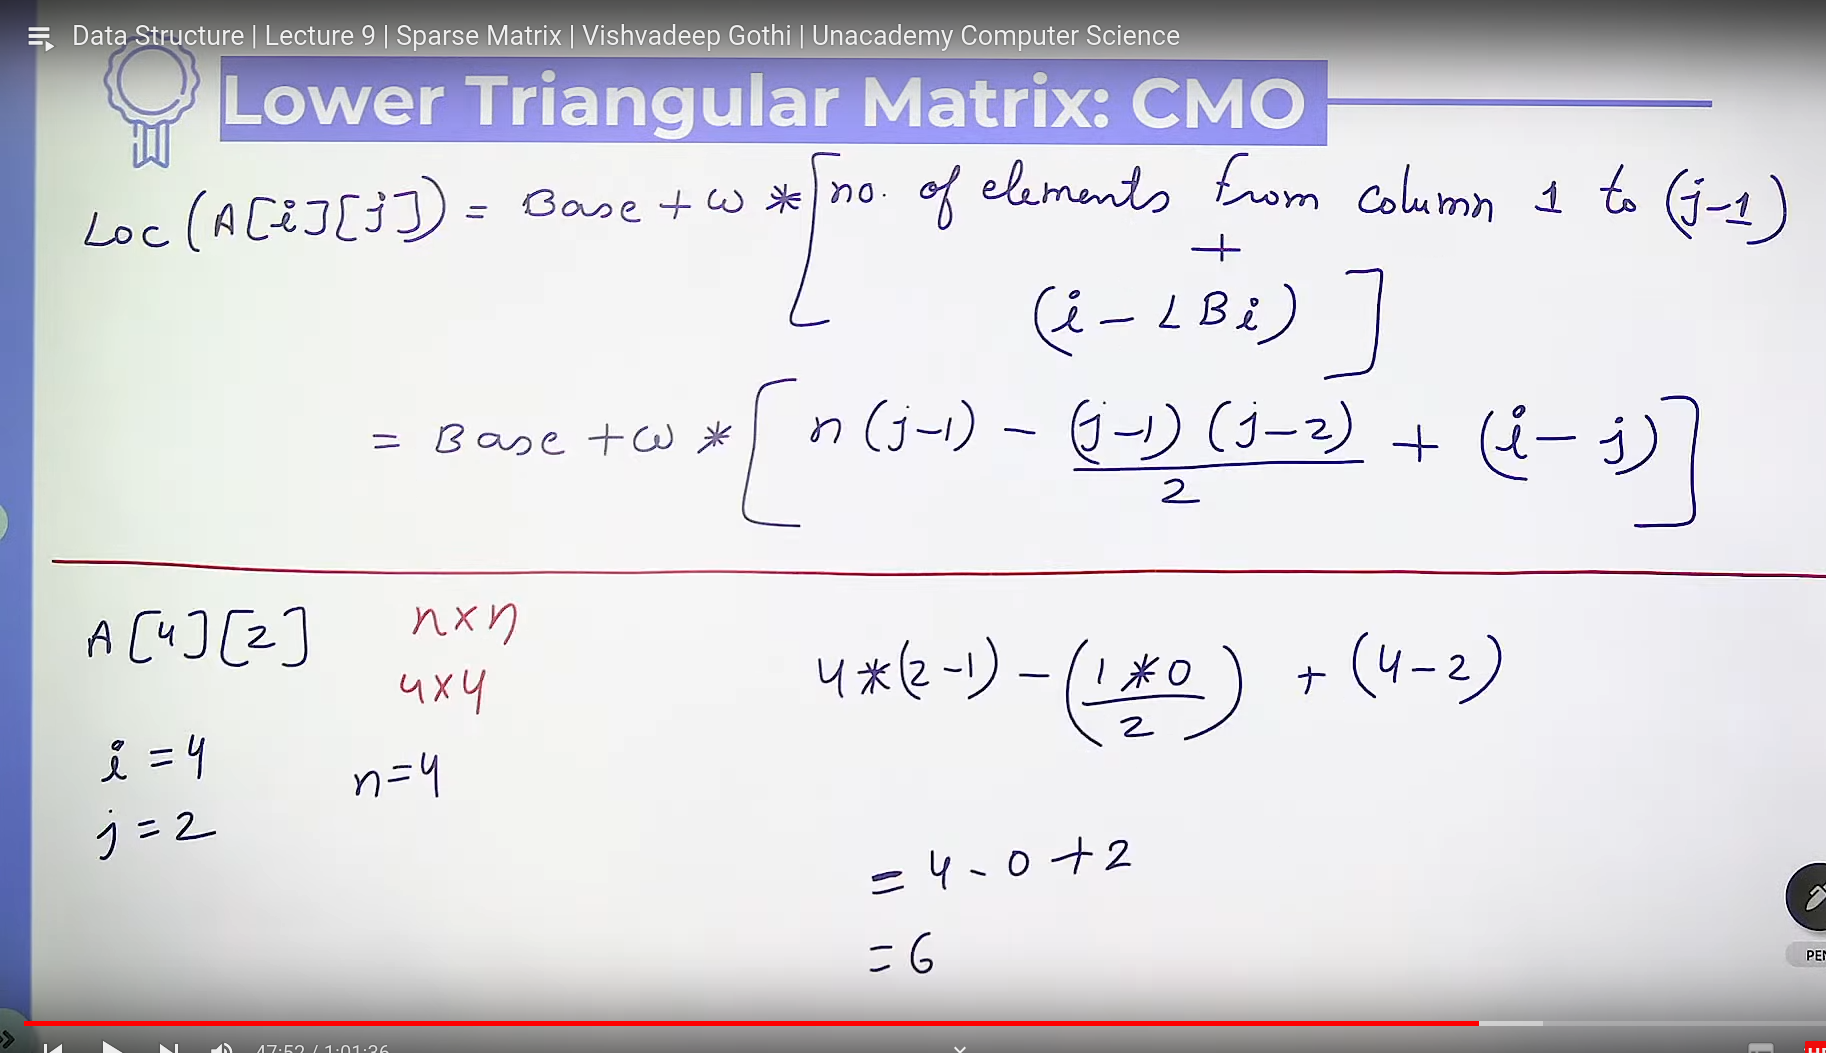 Data Structure | Lecture 9 | Sparse Matrix | Vishvadeep Gothi | Unacademy Computer Science
Lower Triangular Matrix: CMO
Loc (A[i][j]) = Base + w * [ no. of elements from column 1 to (j-1)
+
(i - LBi) ]
= Base + w * [ n (j-1) - (j-1) (j-2) / 2 + (i - j) ]
A[4][2]
n×n
4×4
i = 4
j = 2
n=4
4*(2-1) - (1*0 / 2) + (4-2)
= 4 - 0 + 2
= 6
PEN
47:52 / 1:01:36